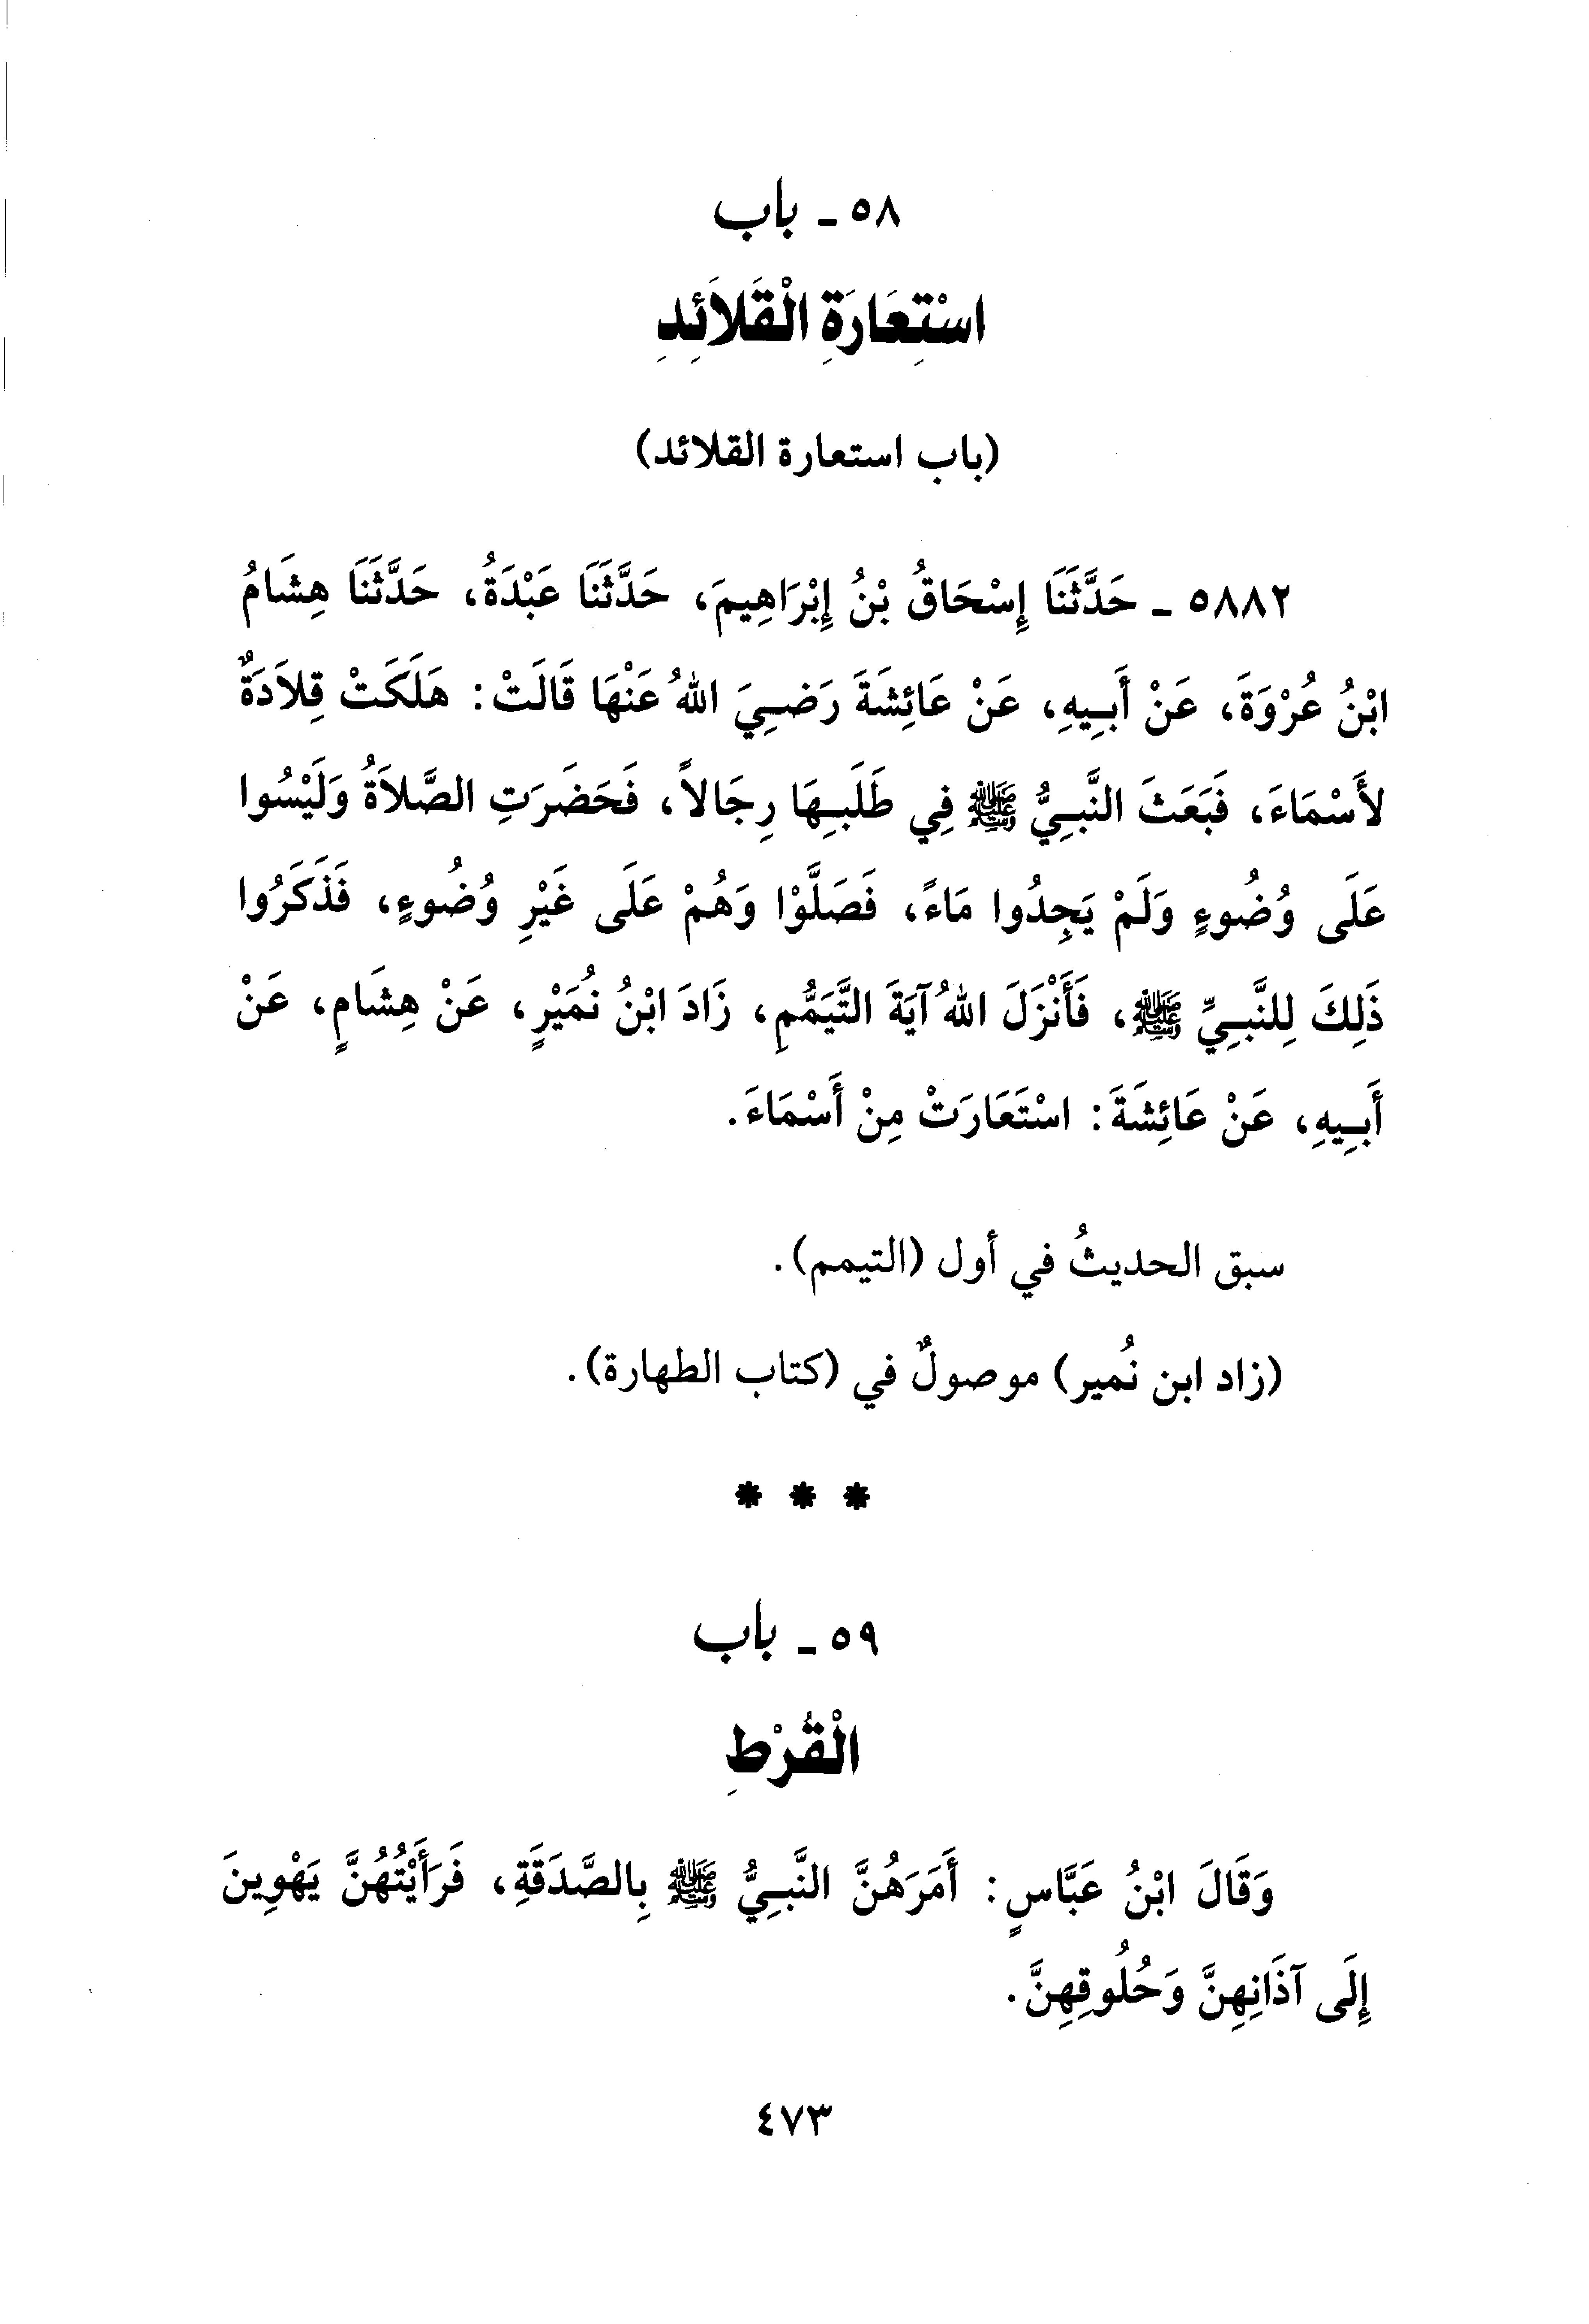 ٥٨ - باب
اسْتِعَارَةِ الْقَلاَئِدِ
(باب استعارة القلائد)
٥٨٨٢ - حَدَّثَنَا إِسْحَاقُ بْنُ إِبْرَاهِيمَ، حَدَّثَنَا عَبْدَةُ، حَدَّثَنَا هِشَامُ
ابْنُ عُرْوَةَ، عَنْ أَبِيهِ، عَنْ عَائِشَةَ رَضِيَ اللهُ عَنْهَا قَالَتْ: هَلَكَتْ قِلاَدَةٌ
لأَسْمَاءَ، فَبَعَثَ النَّبِيُّ ﷺ فِي طَلَبِهَا رِجَالاً، فَحَضَرَتِ الصَّلاَةُ وَلَيْسُوا
عَلَى وُضُوءٍ وَلَمْ يَجِدُوا مَاءً، فَصَلَّوْا وَهُمْ عَلَى غَيْرِ وُضُوءٍ، فَذَكَرُوا
ذَلِكَ لِلنَّبِيِّ ﷺ، فَأَنْزَلَ اللهُ آيَةَ التَّيَمُّمِ، زَادَ ابْنُ نُمَيْرٍ، عَنْ هِشَامٍ، عَنْ
أَبِيهِ، عَنْ عَائِشَةَ: اسْتَعَارَتْ مِنْ أَسْمَاءَ.
سبق الحديثُ في أول (التيمم).
(زاد ابن نُمير) موصولٌ في (كتاب الطهارة).
* * *
٥٩ - باب
الْقُرْطِ
وَقَالَ ابْنُ عَبَّاسٍ: أَمَرَهُنَّ النَّبِيُّ ﷺ بِالصَّدَقَةِ، فَرَأَيْتُهُنَّ يَهْوِينَ
إِلَى آذَانِهِنَّ وَحُلُوقِهِنَّ.
٤٧٣